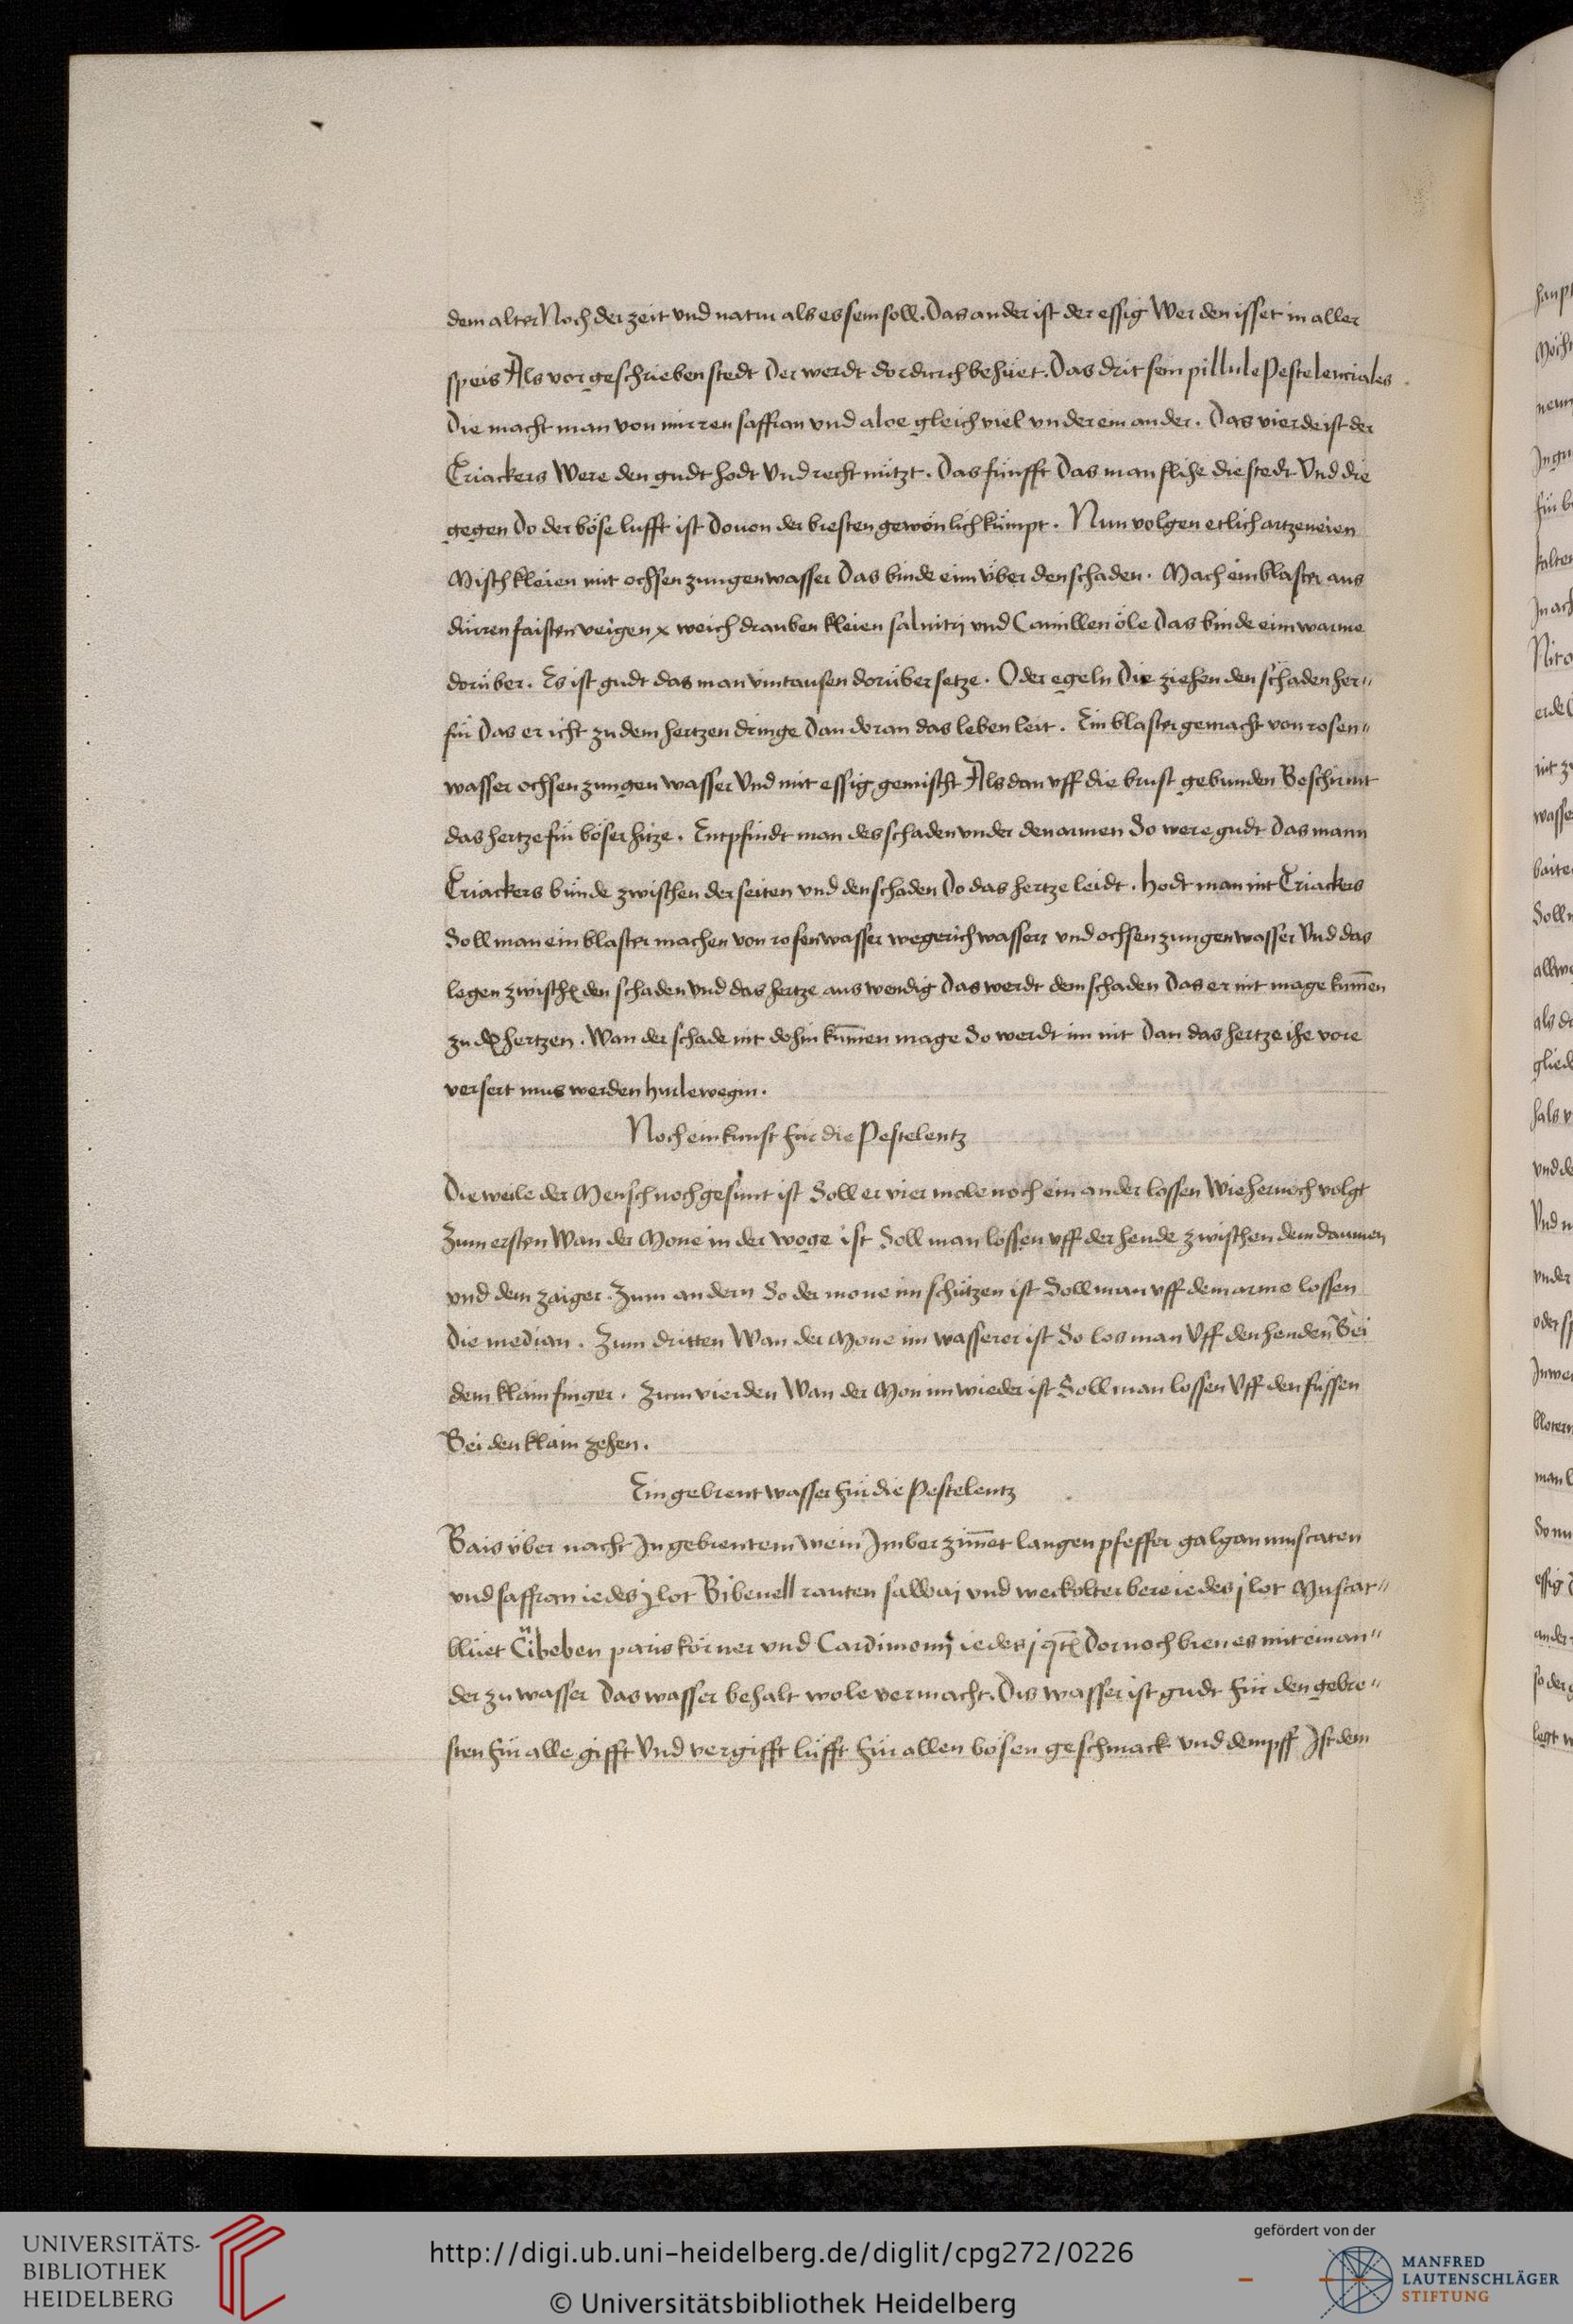 dem alter Noch der zeit vnd natur als es sein soll. Das ander ist der essig Wer den isset in aller
speis Als vor geschrieben stedt Der werdt dordurch behüet. Das drit sein pillule Pestelenciales
Die macht man von mirren saffran vnd aloe gleich viel vnder ein ander. Das vierde ist der
Triackers Were den gudt hodt Vnd recht nützt. Das fünfft Das man flihe die stedt Vnd die
gegen Do der böse lufft ist Douon der bresten gewönlich kümpt. Nun volgen etlich artzeneien
Misch kleien mit ochsen zungen wasser Das binde eim über den schaden. Mach ein blaster aus
dürren faisten veigen x weich drauben kleien salnitrj vnd Camillen öle Das binde eim warme
dorüber. Es ist gudt das man vintausen dorüber setze. Oder egeln Die ziehen den schaden her"
für Das er icht zu dem hertzen dringe Dan doran das leben leit. Ein blaster gemacht von rosen"
wasser ochsen zungen wasser Vnd mit essig gemischt Als dan vff die brust gebunden Beschirmt
das hertze für böser hitze. Entpfindt man des schaden vnder den armen So were gudt Das mann
Triackers bünde zwischen der seiten vnd den schaden Do das hertze leidt. Hodt man nit Triackers
Soll man ein blaster machen von rosenwasser wegerich wasserr vnd ochsen zungen wasser Vnd das
legen zwischen den schaden vnd das hertze auswendig Das werdt dem schaden Das er nit mage kum̄en
zu dem hertzen. Wan der schade nit dohin kum̄en mage So werdt im nit Dan das hertze ihe vore
versert mus werden hurlewegin.
Noch ein kunst für die Pestelentz
Die weile der Mensch noch gesunt ist Soll er vier male noch ein ander lossen Wie hernoch volgt
Zum ersten Wan der Mone in der woge ist Soll man lossen vff der hende zwischen dem daumen
vnd dem zaiger. Zum andern So der mone im schützen ist Soll man vff dem arme lossen
Die median. Zum dritten Wan der Mone im wasserer ist So los man Vff den henden Bei
dem klain finger. Zum vierden Wan der Mon im wieder ist Soll man lossen Vff den füssen
Bei den klain zehen.
Ein gebrent wasser für die Pestelentz
Bais über nacht In gebrentem wein Imber zim̄et langen pfeffer galgan muscaten
vnd saffran iedes j lot Bibenell rauten salbaj vnd weckolter bere iedes j lot Muscat"
blüet Cibeben paris körner vnd Cardimomj iedes j qt Dornoch bren es mit einan"
der zu wasser Das wasser behalt wole vermacht. Dis wasser ist gudt für den gebre"
sten für alle gifft Vnd vergifft lüfft für allen bösen geschmack vnd dempff Ist dem
UNIVERSITÄTS-
BIBLIOTHEK
HEIDELBERG
http://digi.ub.uni-heidelberg.de/diglit/cpg272/0226
© Universitätsbibliothek Heidelberg
gefördert von der
MANFRED
LAUTENSCHLÄGER
STIFTUNG